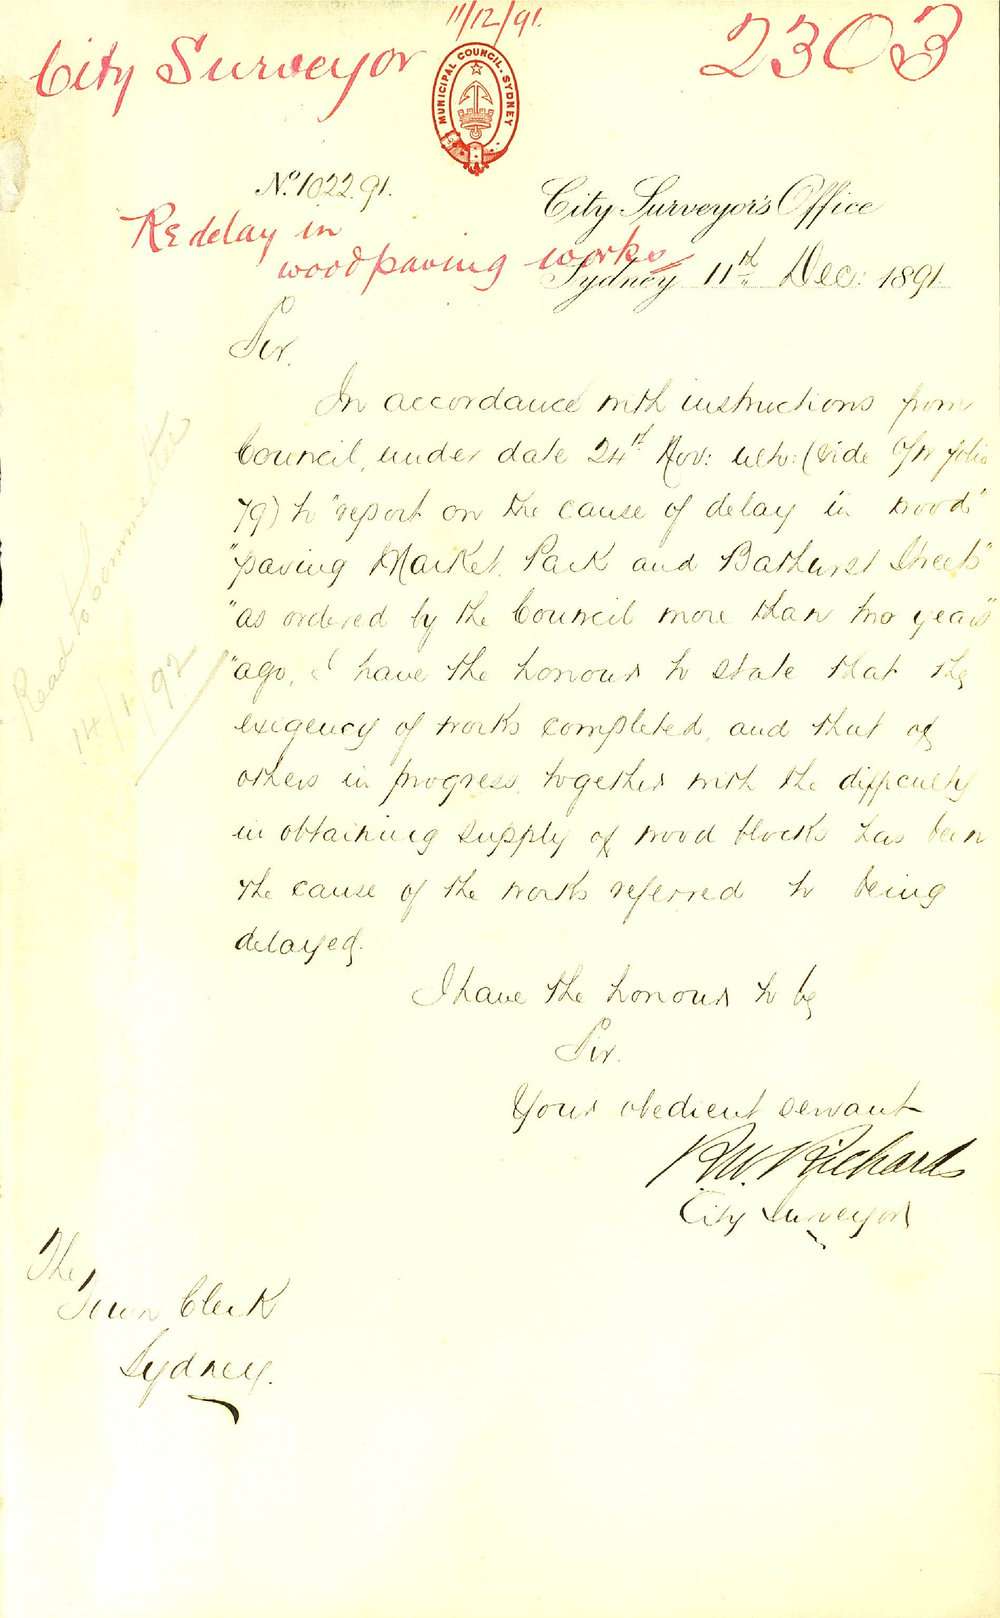 11/12/91.
City Surveyor
2303
MUNICIPAL COUNCIL. SYDNEY
No. 1022.91.
City Surveyor's Office
Re delay in
woodpaving works
Sydney 11th Dec: 1891.
Sir,
In accordance with instructions from
Council, under date 24th Nov: ulto: (vide folio
79) to "report on the cause of delay in wood"
"paving Market, Park and Bathurst Streets"
"as ordered by the Council more than two years"
"ago, I have the honour to state that the
exigency of works completed, and that of
others in progress, together with the difficulty
in obtaining supply of wood blocks has been
the cause of the works referred to being
delayed.
I have the honour to be
Sir.
Your obedient servant
R.W. Richards
City Surveyor
The
Town Clerk
Sydney.
Read to Committee
14/1/92